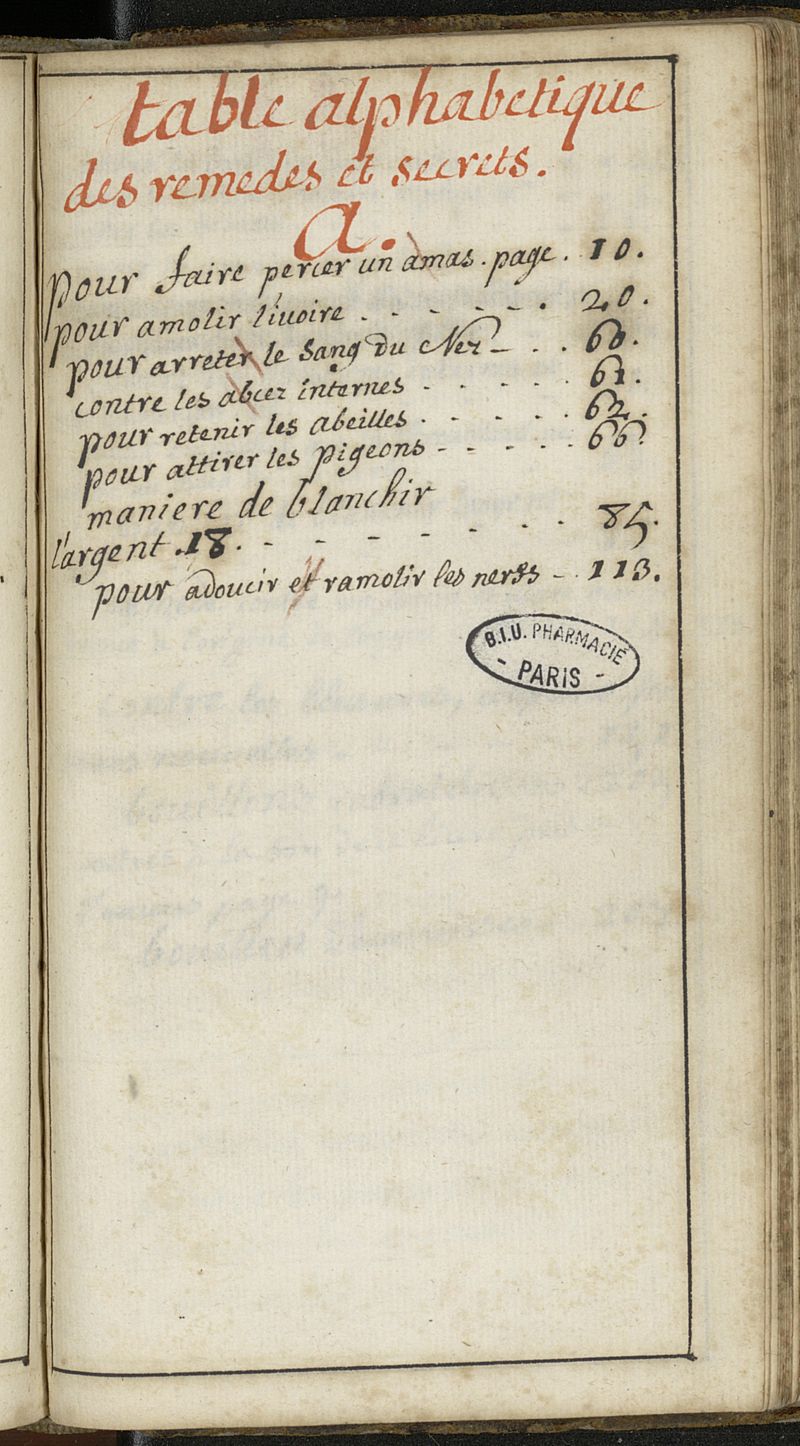 table alphabetique
des remedes et secrets.
a.
pour faire percer un amas. page. 10.
pour amolir l'iuoire . - - - - - . 20.
pour arreter le sang du Nez - . . 60.
contre les abcez internes - - - - . 61.
pour retenir les abeilles . - - - . . 62.
pour attirer les pigeons - - - - - . 66.
maniere de blanchir
l'argent .18. - - - - - - - . 85.
pour adoucir et ramolir les nerfs - . 113.
B.I.U. PHARMACIE
- PARIS -